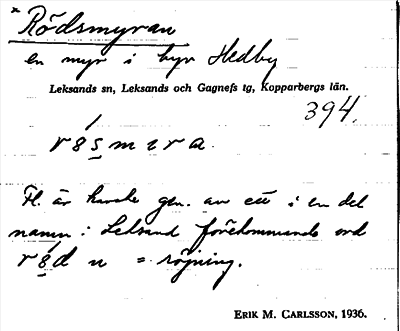 * Rödsmyran
en myr i byn Hedby
Leksands sn, Leksands och Gagnefs tg, Kopparbergs län.
394.
Fl. är kanske gen. av ett i en del
namn i Leksand förekommande ord
n = röjning.
ERIK M. CARLSSON, 1936.